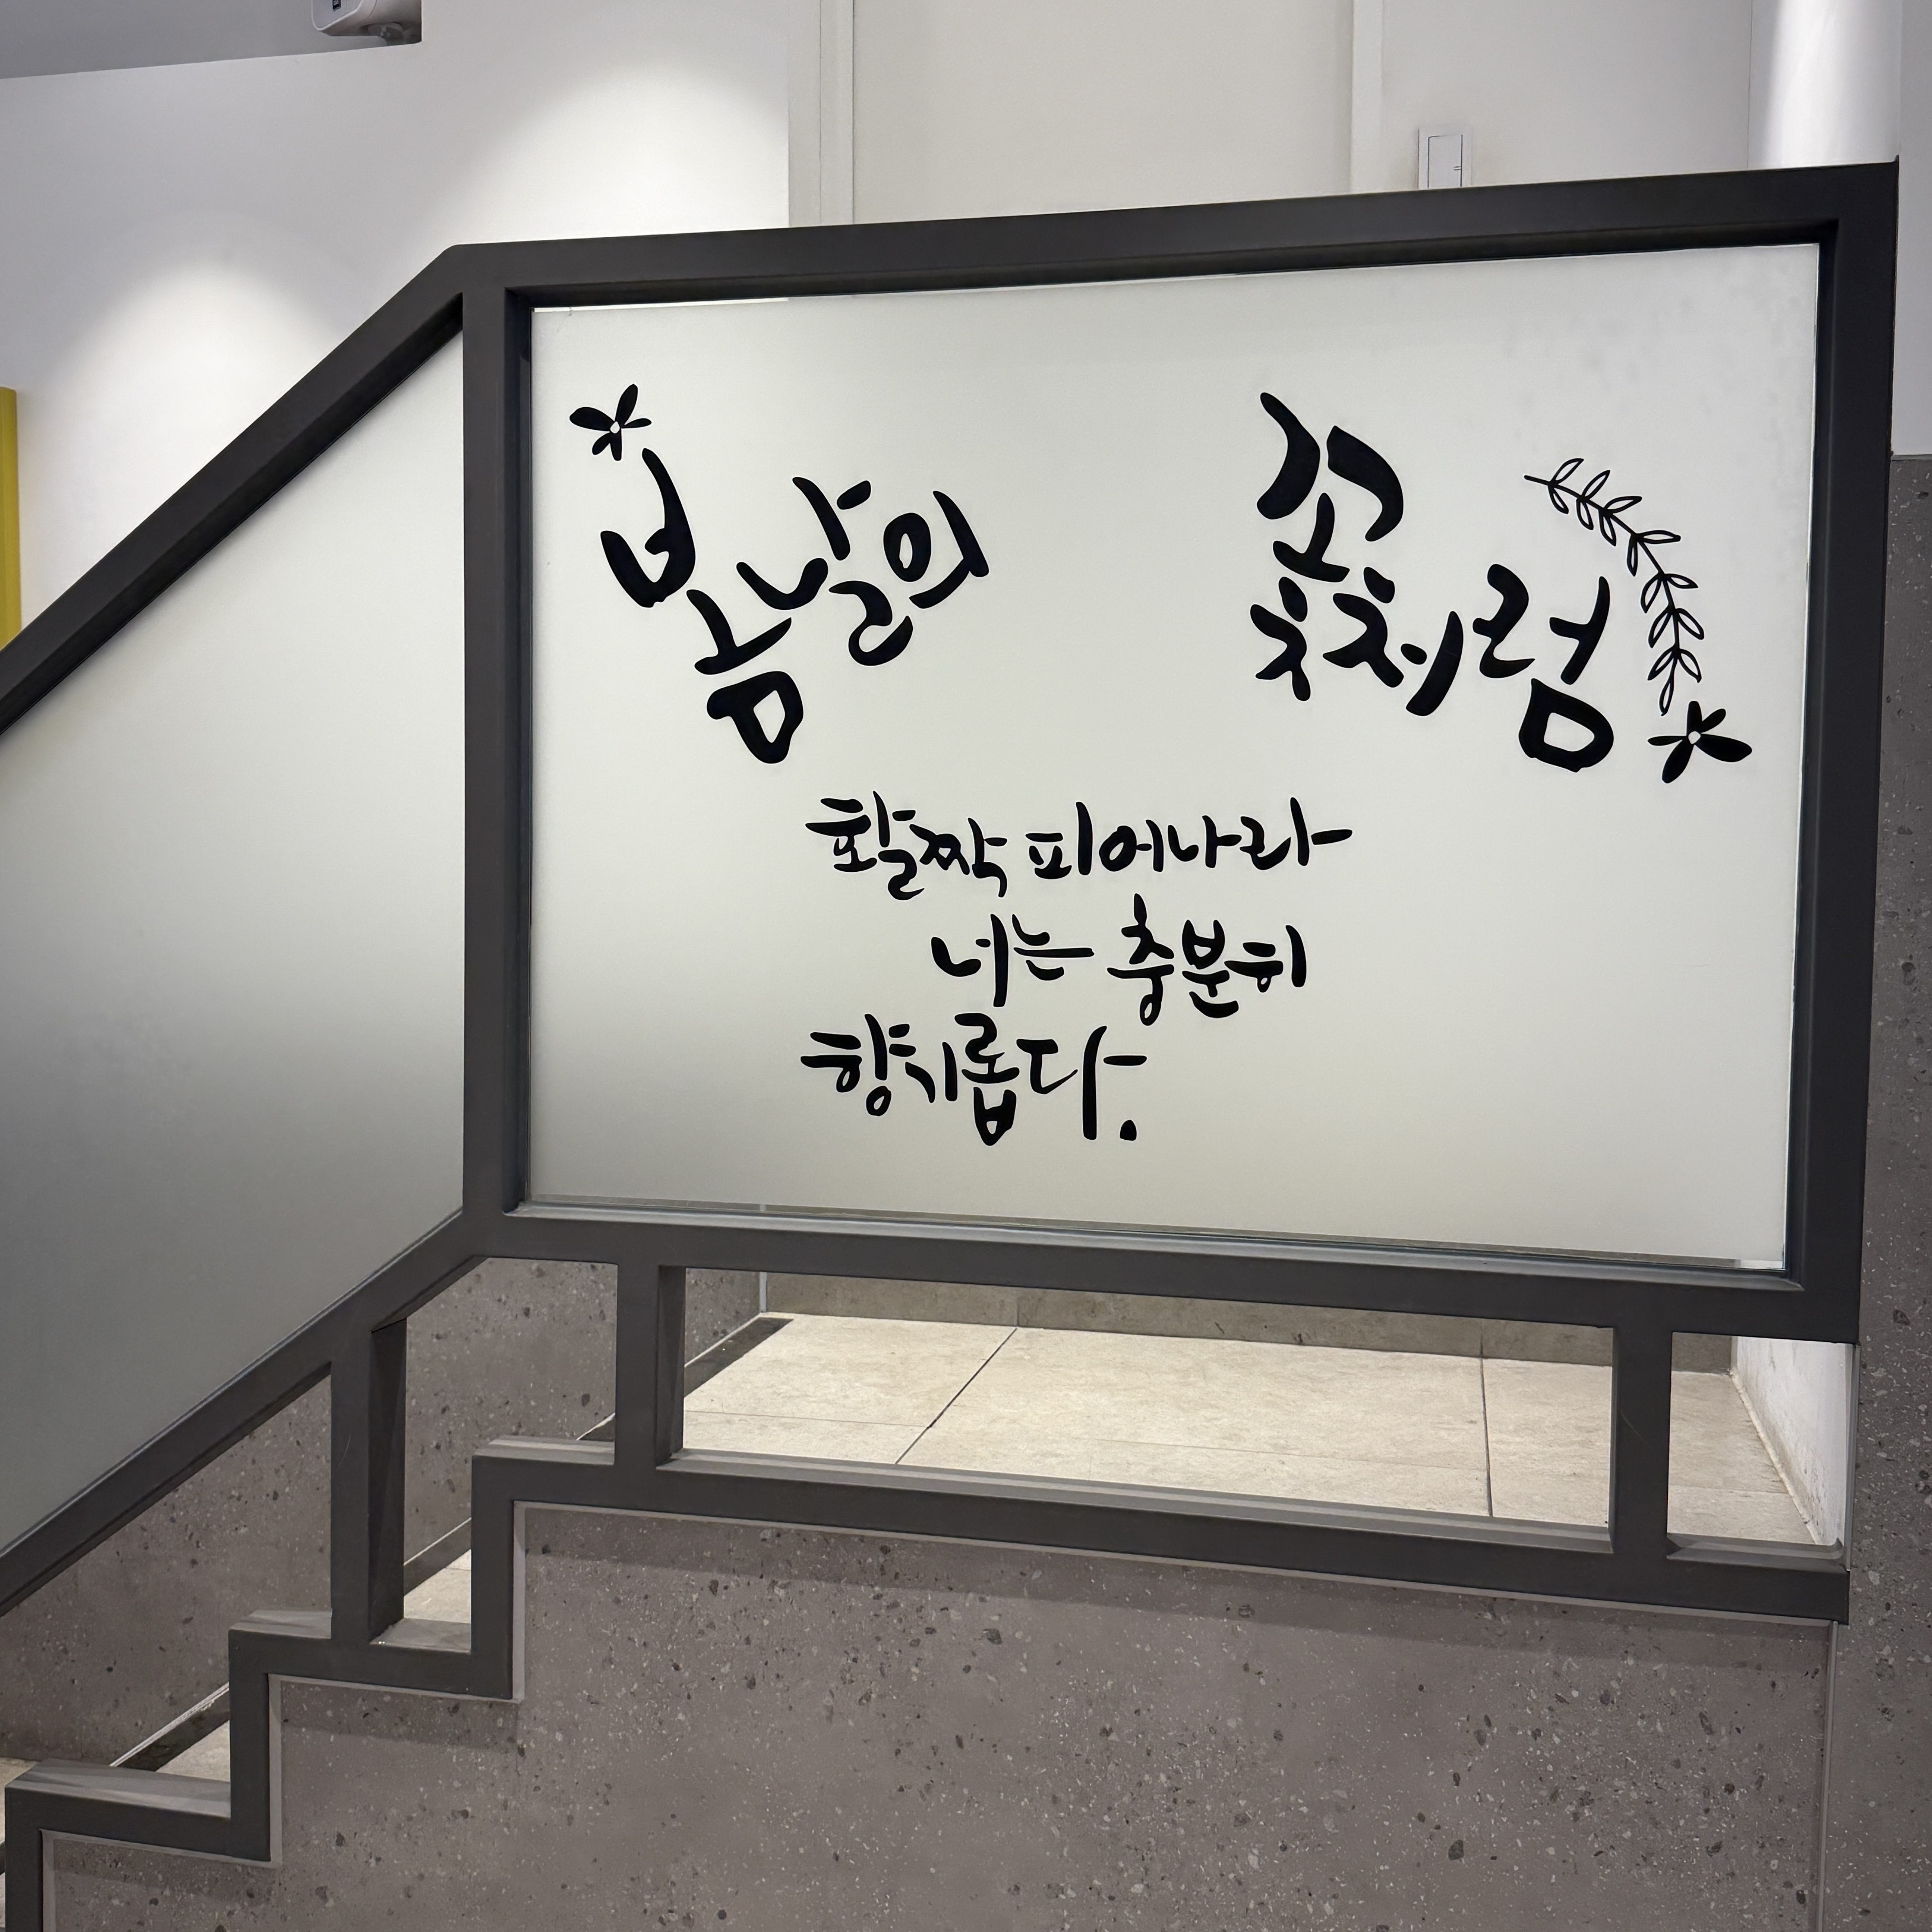 봄날의 꽃처럼
활짝 피어나라
너는 충분히
향기롭다.